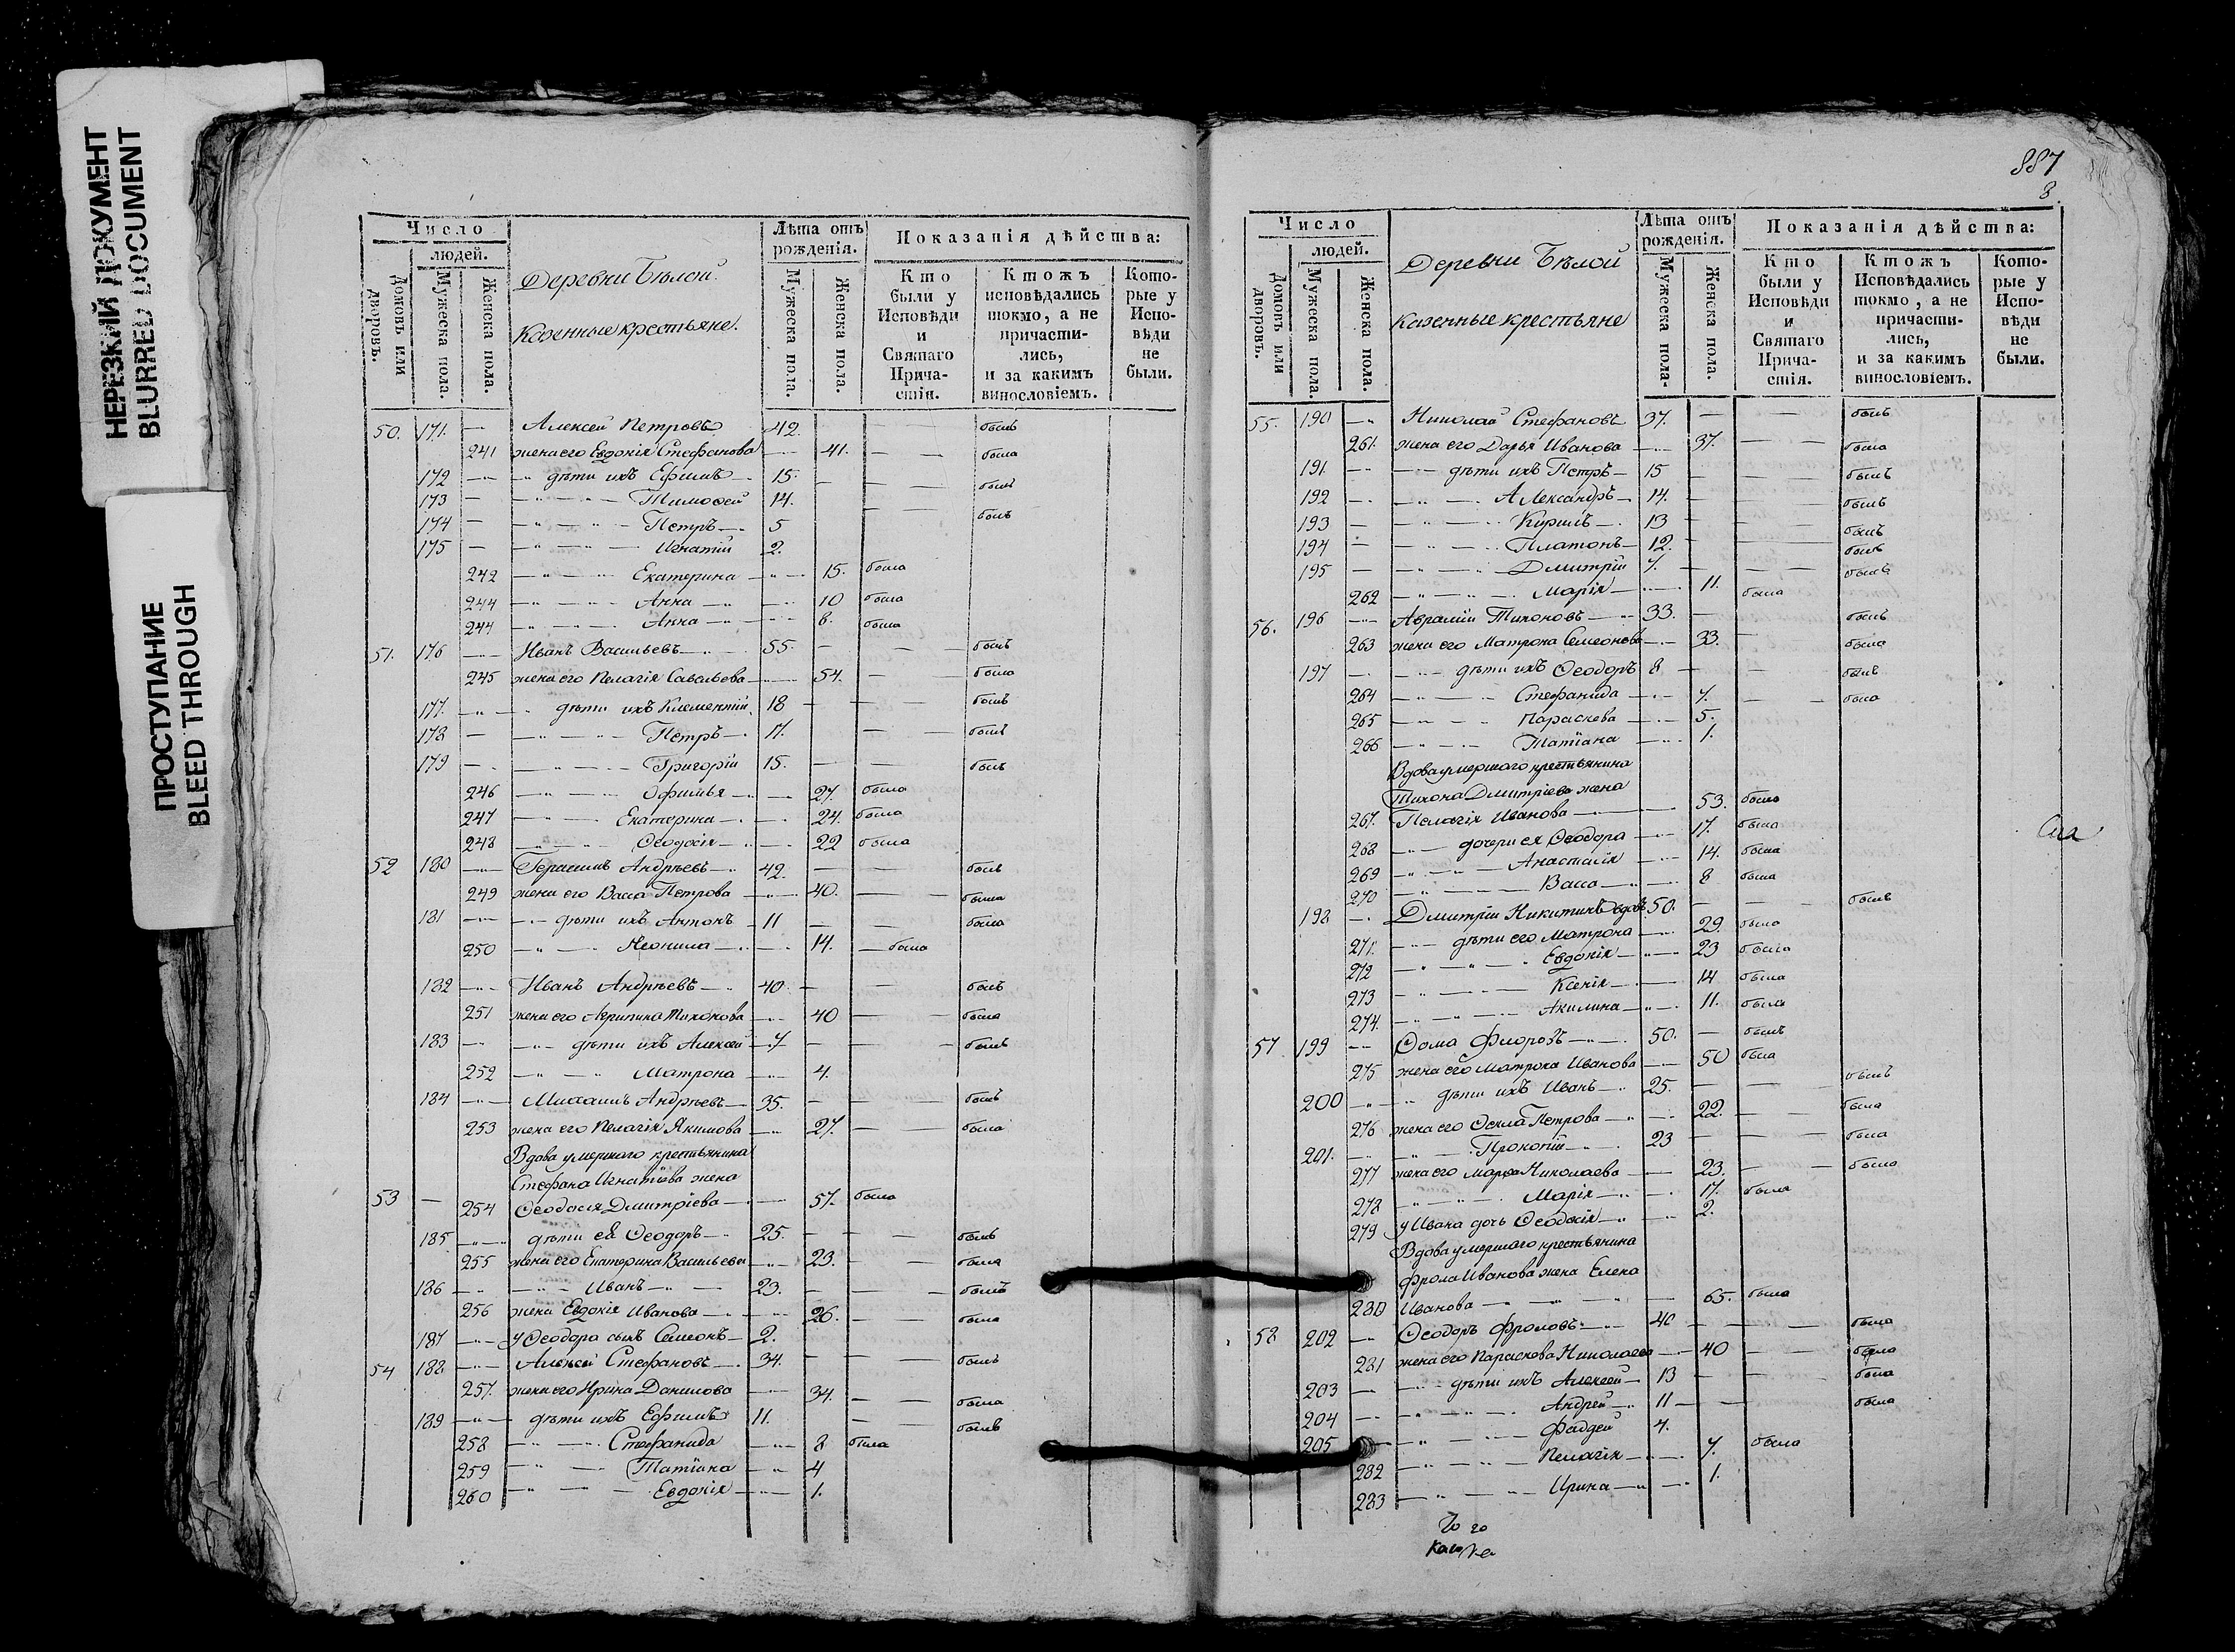 НЕРЕЗКИЙ ДОКУМЕНТ
BLURRED DOCUMENT
ПРОСТУПАНИЕ
BLEED THROUGH
Число
людей.
Домовъ или дворовъ.
Мужеска пола.
Женска пола.
Деревни Бѣлой
Казенные крестьяне.
Лѣта отъ рожденія.
Мужеска пола.
Женска пола.
Показанія дѣйства:
Кто были у Исповѣди и Святаго Прича-стія.
Ктожъ исповѣдались токмо, а не причасти-лись, и за какимъ винословіемъ.
Кото-рые у Испо-вѣди не были.
50. 171. Алексей Петровъ 42. былъ
241 жена его Евдокія Стефанова 41. была
172 дѣти ихъ Ефимъ 15. былъ
173 Тимофей 14. былъ
174 Петръ 5
175 Игнатій 2.
242 Екатерина 15. была
244 Анна 10 была
244 Анна 8. была
51. 176 Иванъ Васильевъ 55. былъ
245 жена его Пелагія Савельева 54. была
177. дѣти ихъ Климентій 18 былъ
178 Петръ 17. былъ
179 Григорій 15. былъ
246 Офимья 27. была
247 Екатерина 24. была
248 Ѳеодосія 22 была
52 180 Герасимъ Андрѣевъ 42. былъ
249 жена его Васса Петрова 40. была
181 дѣти ихъ Антонъ 11 была
250 Неонила 14. была
182 Иванъ Андрѣевъ 40 былъ
251 жена его Агрипина Тихонова 40 была
183 дѣти ихъ Алексей 7 былъ
252 Матрона 4.
184 Михаилъ Андрѣевъ 35. былъ
253 жена его Пелагія Якимова 27. была
Вдова умершаго крестьянина
Стефана Игнатіева жена
53 254 Ѳеодосія Дмитріева 57. была
185 дѣти ея Ѳеодоръ 25. былъ
255 жена его Екатерина Васильева 23. была
186 Иванъ 23. былъ
256 жена Евдокія Иванова 26. была
187 у Ѳеодора сынъ Семеонъ 2.
54 188 Алексей Стефановъ 34. былъ
257. жена его Ирина Данилова 34. была
189 дѣти ихъ Ефимъ 11. былъ
258 Стефанида 8 была
259 Татіана 4
260 Евдокія 1.
887
8
Число
людей.
Домовъ или дворовъ.
Мужеска пола.
Женска пола.
Деревни Бѣлой
Казенные крестьяне
Лѣта отъ рожденія.
Мужеска пола.
Женска пола.
Показанія дѣйства:
Кто были у Исповѣди и Святаго Прича-стія.
Ктожъ Исповѣдались токмо, а не причасти-лись, и за какимъ винословіемъ.
Кото-рые у Испо-вѣди не были.
55. 190 Николай Стефановъ 37. былъ
261. жена его Дарья Иванова 37. была
191. дѣти ихъ Петръ 15 былъ
192 Александръ 14. былъ
193 Кирилъ 13 былъ
194 Платонъ 12. былъ
195 Дмитрій 7. былъ
262 Марія 11. была
56. 196 Авраміи Тихоновъ 33. былъ
263 жена его Матрона Семеонова 33. была
197 дѣти ихъ Ѳеодоръ 8 былъ
264 Стефанида 7. была
265 Параскева 5.
266 Татіана 1.
Вдова умершаго крестьянина
Тихона Дмитріева жена
267. Пелагія Иванова 53. была
268 дочери ея Ѳеодора 17. была
269 Анастасія 14. была
270 Васса 8 была
198 Дмитрій Никитинъ вдовъ 50. былъ
271. дѣти его Матрона 29. была
272 Евдокія 23 была
273 Ксенія 14 была
274. Акилина 11. была
57. 199 Ѳома Флоровъ 50. былъ
275 жена его Матрона Иванова 50 была
200 дѣти ихъ Иванъ 25. былъ
276 жена его Ѳекла Петрова 22. была
201. Прокопій 23 была
277 жена его Марѳа Николаева 23. была
278 Марія 17. была
279 у Ивана дочь Ѳеодосія 2.
Вдова умершаго крестьянина
Фрола Иванова жена Елена
280 Иванова 65. была
58 202 Ѳеодоръ Фроловъ 40 была
281 жена его Параскева Николаева 40 была
203 дѣти ихъ Алексей 13 была
204 Андрей 11 была
205 Фаддей 4.
282 Пелагія 7. была
283 Ирина 1.